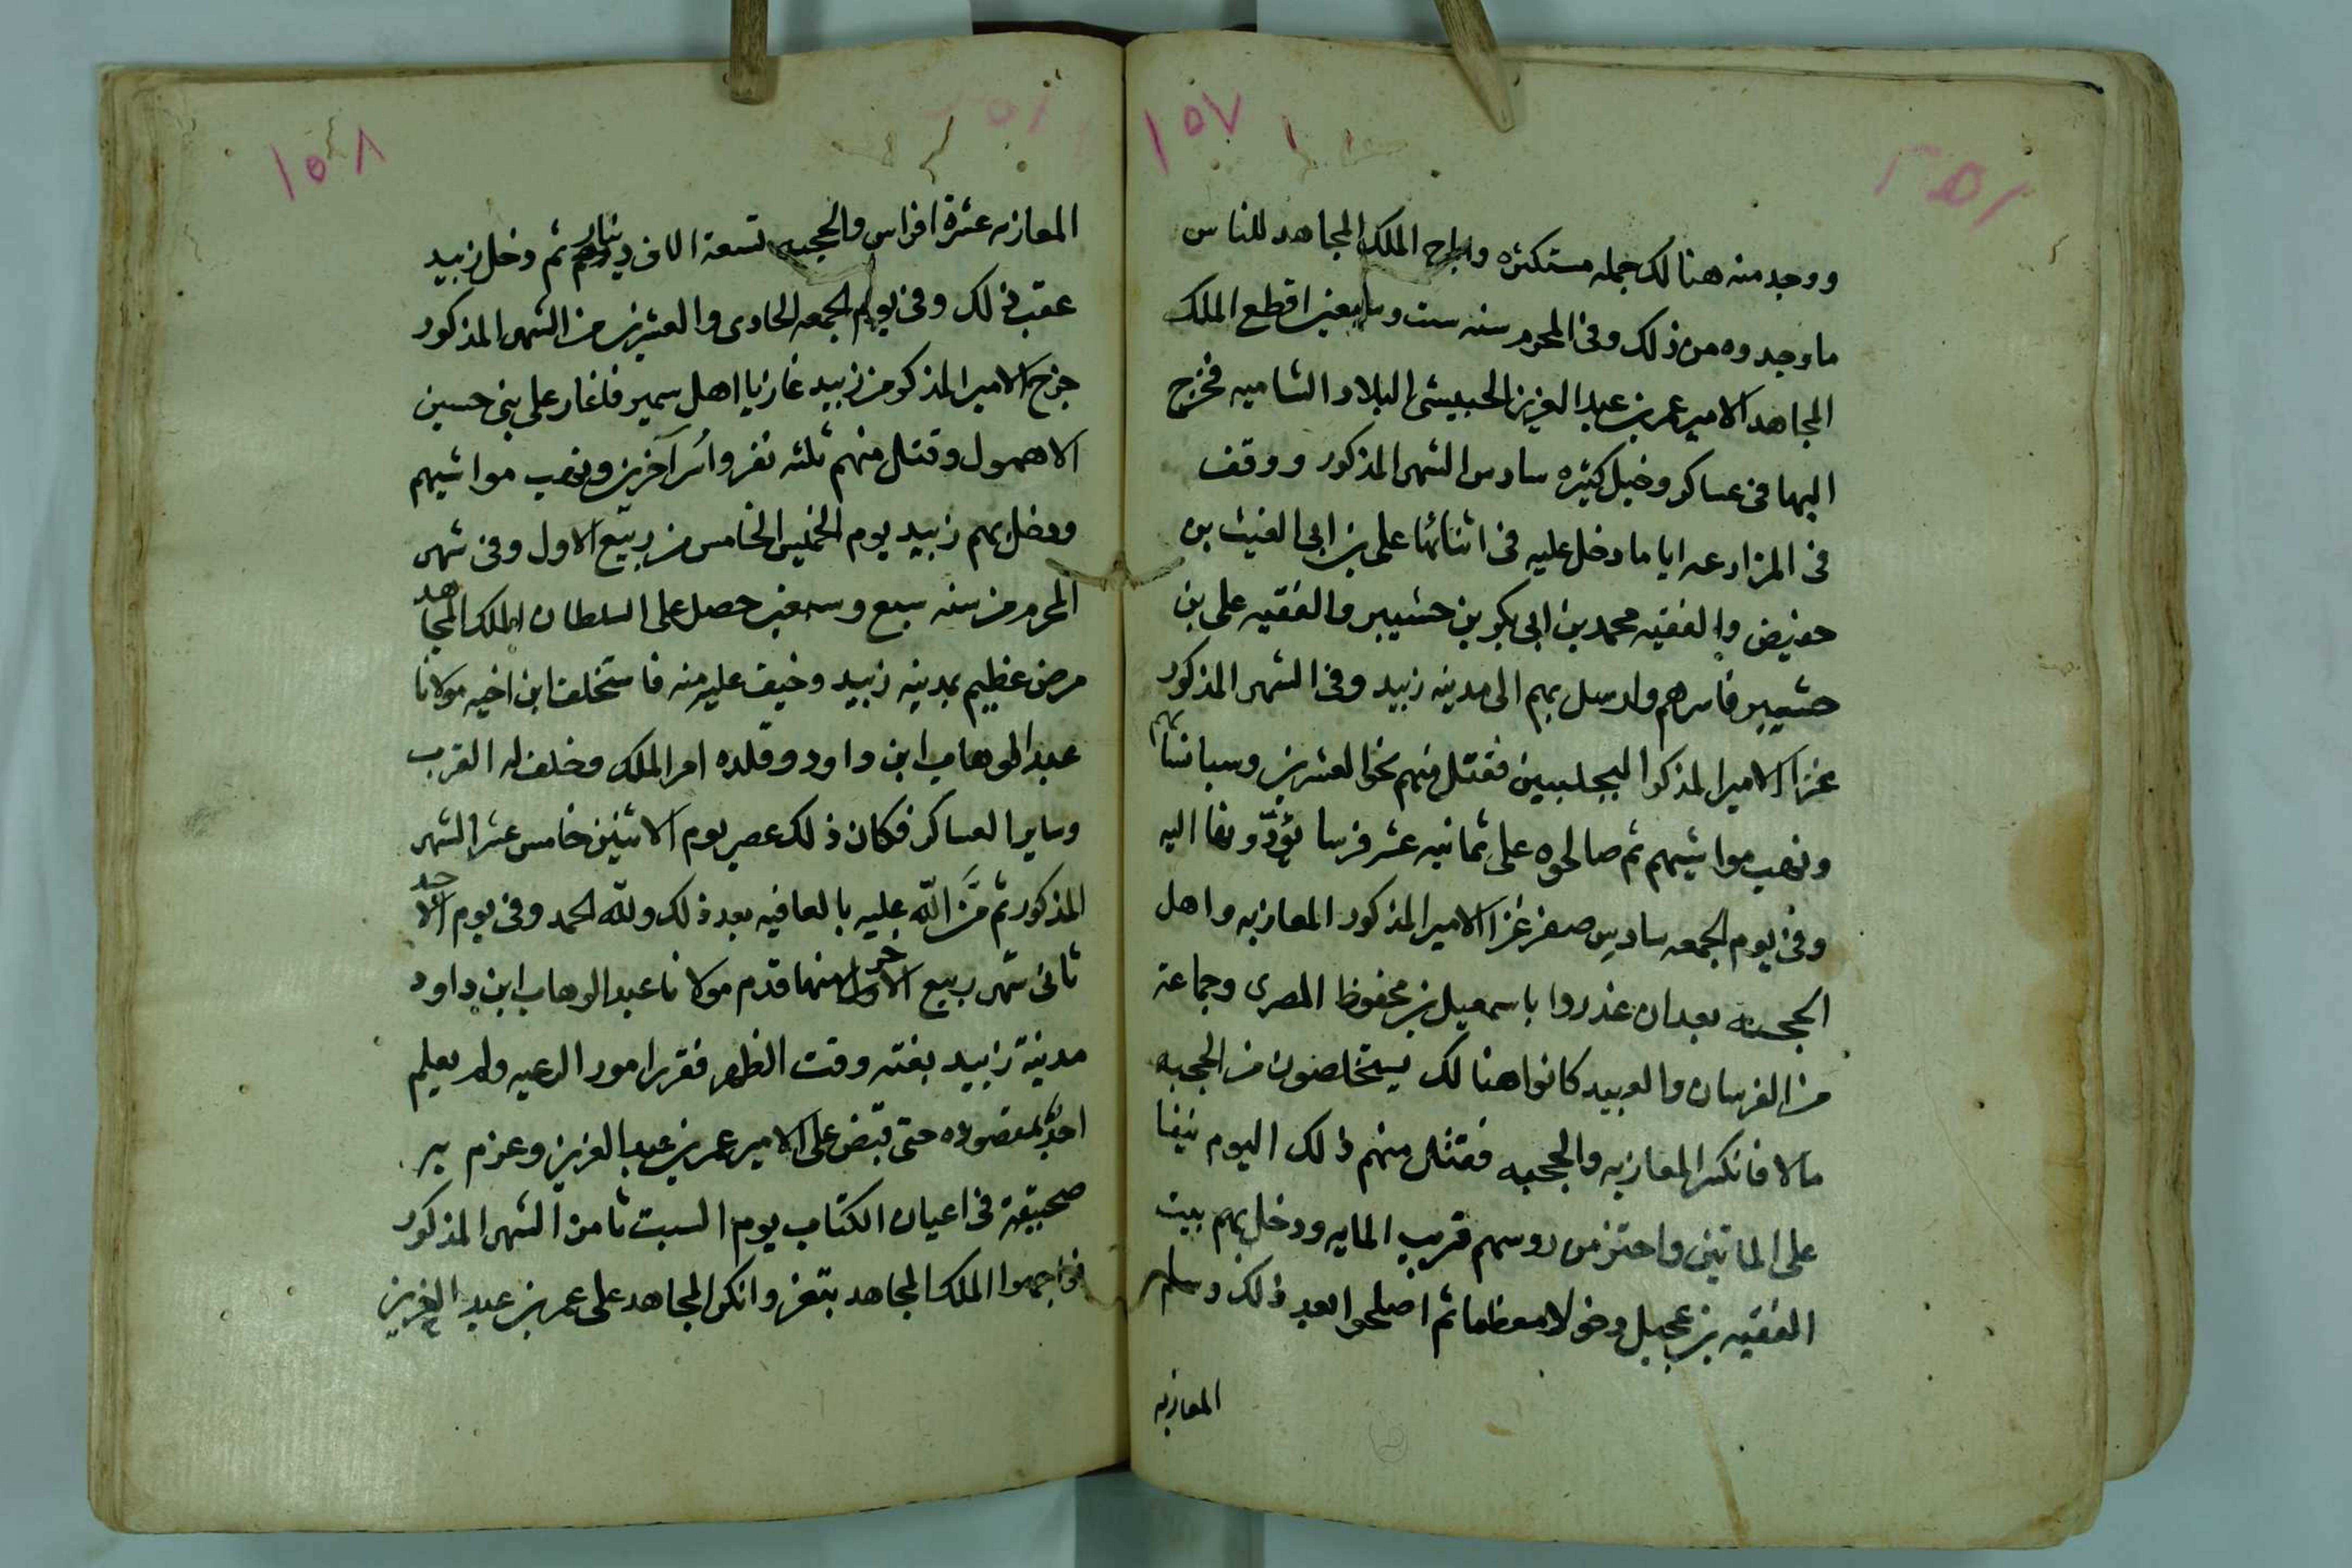 ١٥٧
ووجد منه هنالك جمله مستكثره واباح الملك المجاهد للناس
ما وجدوه من ذلك وفى المحرم سنه ست وسبعين اقطع الملك
المجاهد الامير عمر بن عبد العزيز الحبيشى البلاد الشاميه فخرج
اليها فى عساكر وخيل كثيره سادس الشهر المذكور ووقف
فى المزارعه اياما دخل عليه فى اثنائها على بن ابى الغيث بن
حفيص والفقيه محمد بن ابى بكر بن حشيبر والفقيه على بن
حشيبر فاسرهم وارسل بهم الى مدينه زبيد وفى الشهر المذكور
غزا الامير المذكوا البجلييين فقتل منهم نحوا لعشرين وسبا نسائهم
ونهب مواشيهم ثم صالحوه على ثمانيه عشر فرسا يؤدّونها اليه
وفى يوم الجمعه سادس صفر غزا الامير المذكور المعازبه واهل
الحجبه بعد ان غدروا باسمعيل بن محفوظ المصرى وجماعة
من الفرسان والعبيد كانوا هنالك يستخلصون من الحجبه
مالا فانكسر المعازبه والحجبه فقتل منهم ذلك اليوم نيفا
على الماتين واحتز من روسهم قريب المايه ودخل بهم بيت
الفقيه بن عجيل دخولا معظما ثم اصلحوا بعد ذلك وسلم
المعازبه
١٥٨
المعازبه عشرة افراس والحجبه تسعة الاف دينار ثم دخل زبيد
عقب ذلك وفى يوم الجمعه الحادى والعشرين من الشهر المذكور
خرج الامير المذكور من زبيد غازيا اهل سمير فاغار على بنى حسين
الاهمول وقتل منهم ثلثه نفر واسر آخرين ونهب مواشيهم
ودخل بهم زبيد يوم الخميس الخامس من ربيع الاول وفى شهر
المحرم من سنه سبع وسبعين حصل على السلطان الملك المجاهد
مرض عظيم بمدينه زبيد وخيف عليه منه فاستخلف ابن اخيه مولانا
عبد الوهاب ابن داود وقلده امر الملك وحلف له القرب
وساير العساكر فكان ذلك عصر يوم الاثنين خامس عشر الشهر
المذكور ثم مَنَّ الله عليه بالعافيه بعد ذلك ولله الحمد وفى يوم الاحد
ثانى شهر ربيع الاخر منها قدم مولانا عبد الوهاب ابن داود
مدينة زبيد بغته وقت الظهر فقرر امور الرعيه ولم يعلم
احدٌ بمقصوده حتى قبض على الامير عمر بن عبد العزيز وعزم به
صحبته فى اعيان الكتاب يوم السبت ثامن الشهر المذكور
فواجهوا الملك المجاهد بتعز وانكر المجاهد على عمر بن عبد العزيز